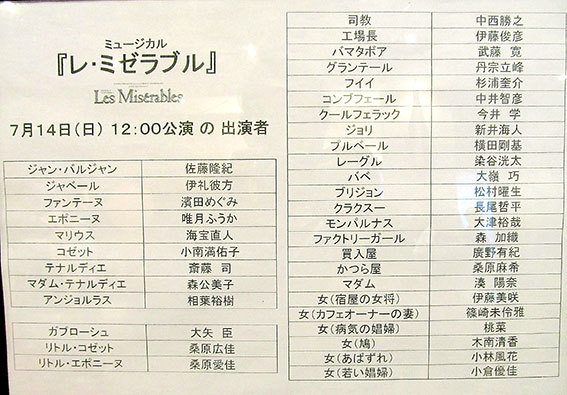 ミュージカル
『レ・ミゼラブル』
Les Misérables
7月14日(日) 12:00公演 の 出演者
ジャン・バルジャン 佐藤隆紀
ジャベール 伊礼彼方
ファンテーヌ 濱田めぐみ
エポニーヌ 唯月ふうか
マリウス 海宝直人
コゼット 小南満佑子
テナルディエ 斎藤 司
マダム・テナルディエ 森公美子
アンジョルラス 相葉裕樹
ガブローシュ 大矢 臣
リトル・コゼット 桑原広佳
リトル・エポニーヌ 桑原愛佳
司教 中西勝之
工場長 伊藤俊彦
バマタボア 武藤 寛
グランテール 丹宗立峰
フイイ 杉浦奎介
コンブフェール 中井智彦
クールフェラック 今井 学
ジョリ 新井海人
プルベール 横田剛基
レーグル 染谷洸太
バベ 大嶺 巧
ブリジョン 松村曜生
クラクスー 長尾哲平
モンパルナス 大津裕哉
ファクトリーガール 森 加織
買入屋 廣野有紀
かつら屋 桑原麻希
マダム 湊 陽奈
女(宿屋の女将) 伊藤美咲
女(カフェオーナーの妻) 篠崎未伶雅
女(病気の娼婦) 桃菜
女(鳩) 木南清香
女(あばずれ) 小林風花
女(若い娼婦) 小倉優佳